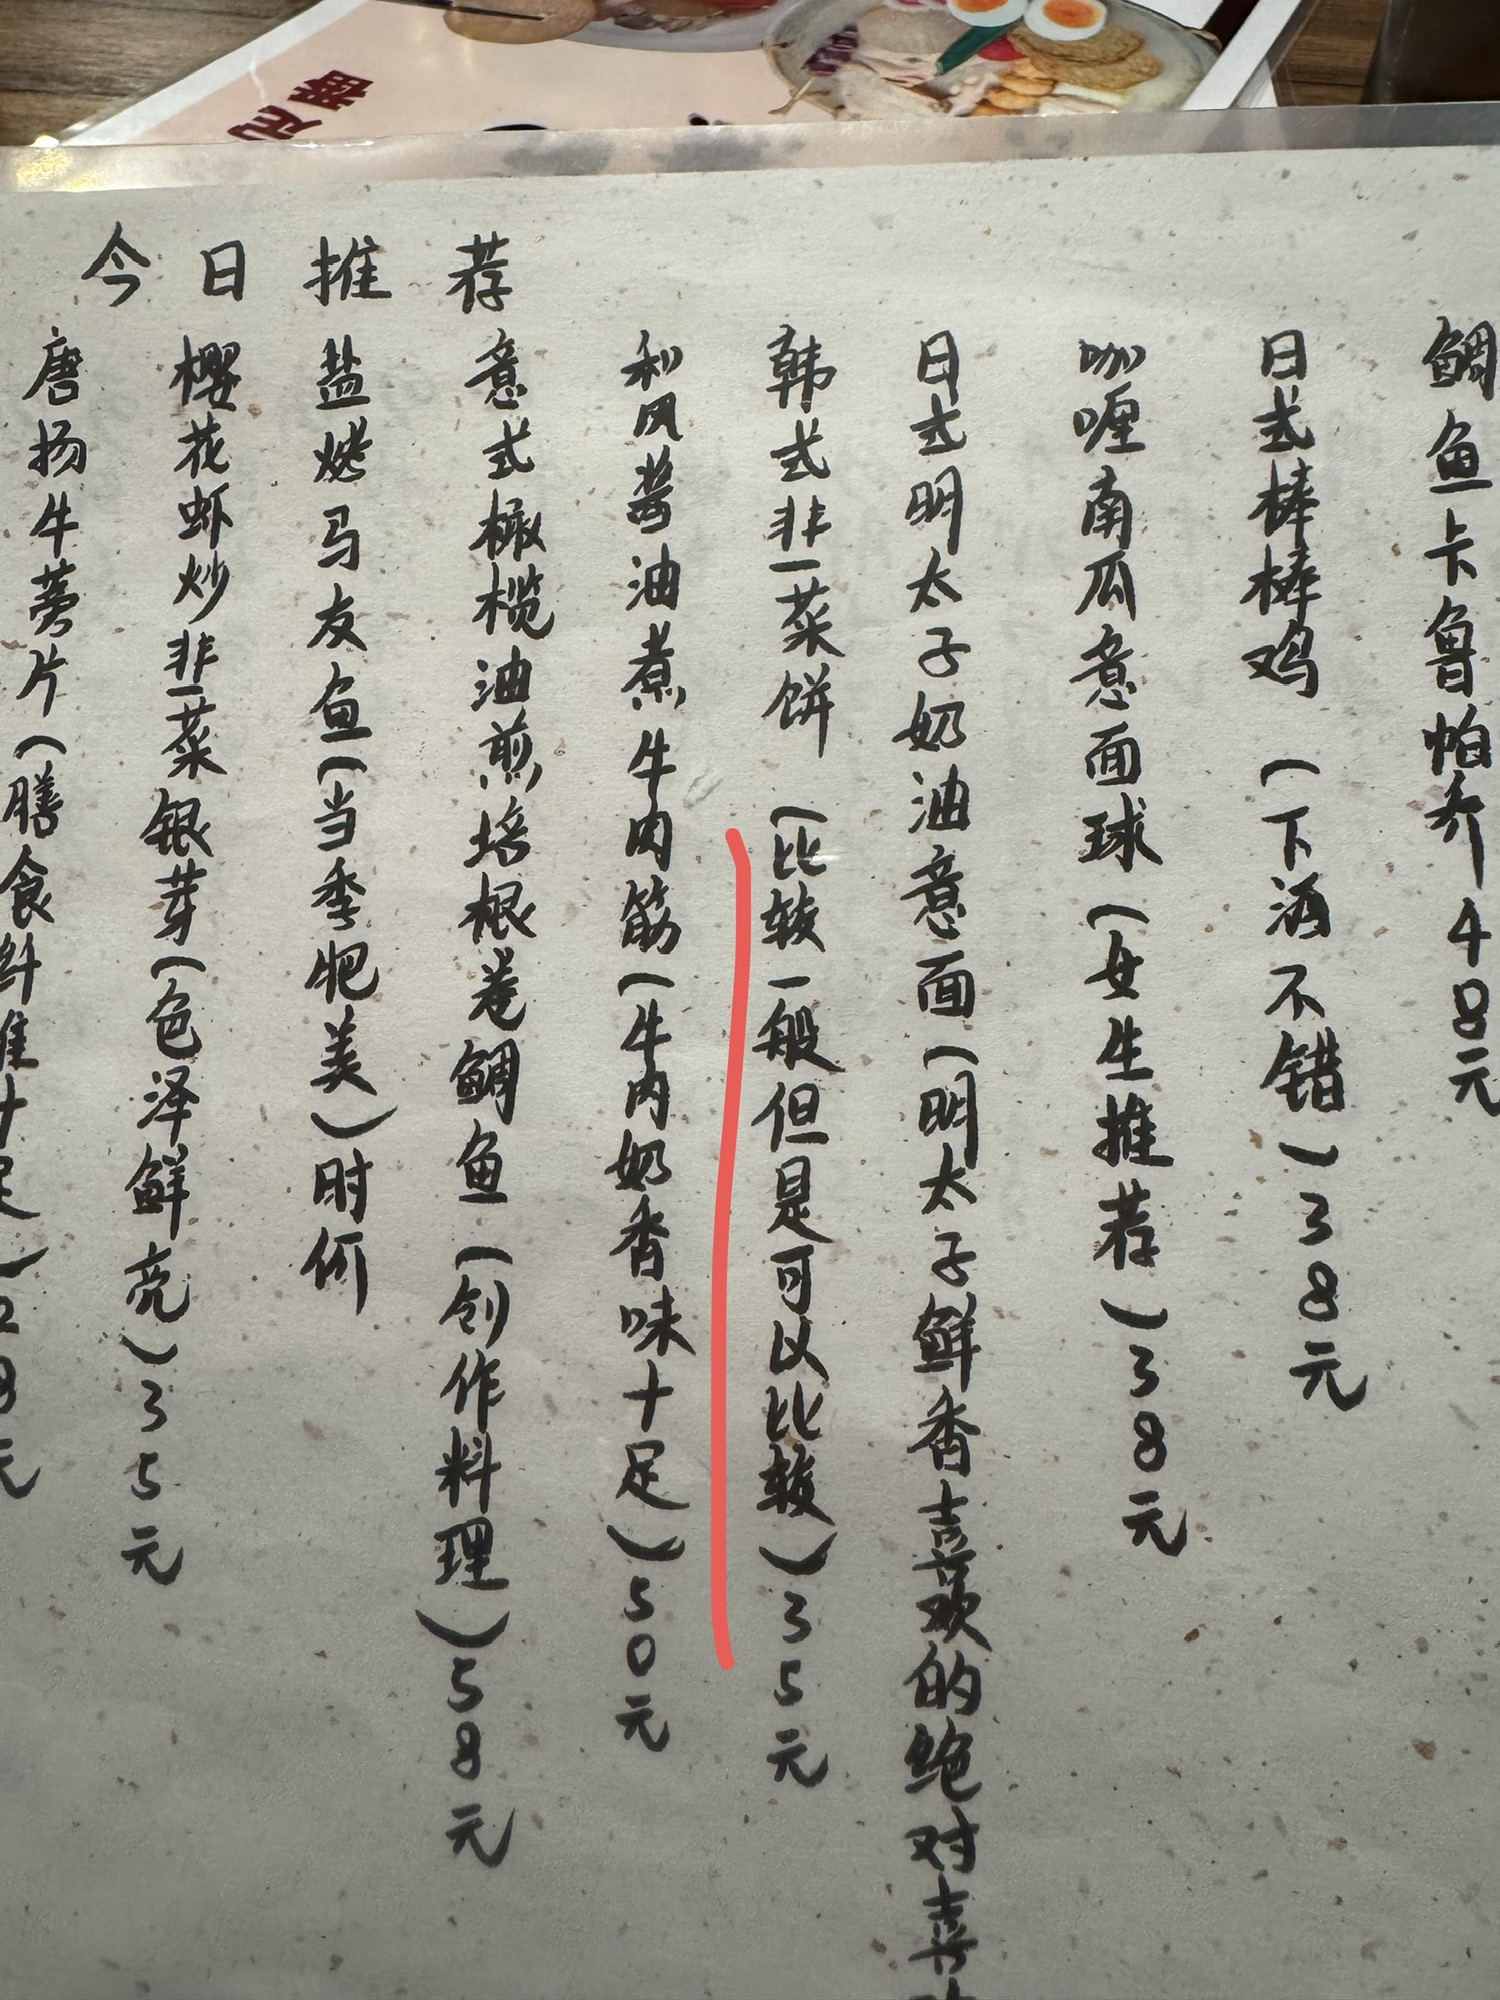 今日推荐
唐扬牛蒡片(膳食纤维十足)28元
樱花虾炒韭菜银芽(色泽鲜亮)35元
盐烤马友鱼(当季肥美)时价
意式橄榄油煎培根卷鲷鱼(创作料理)58元
和风酱油煮牛肉筋(牛肉奶香味十足)50元
韩式韭菜饼(比较一般但是可以比较)35元
日式明太子奶油意面(明太子鲜香喜欢的绝对喜
咖喱南瓜意面球(女生推荐)38元
日式棒棒鸡(下酒不错)38元
鲷鱼卡鲁帕乔48元